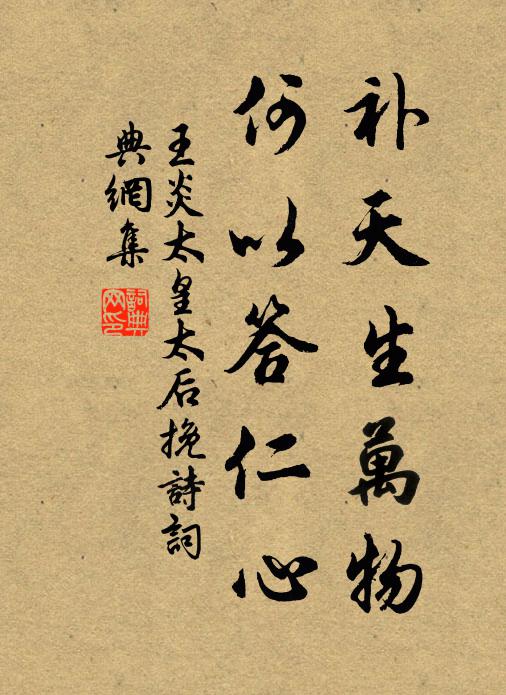 补天生萬物
何以答仁心
王炎太皇太后挽詩詞
典網集
詞典
网印